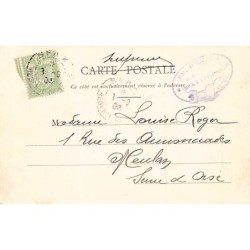 Imprimé
CARTE POSTALE
Ce côté est exclusivement réservé à l'adresse
Madame Louise Roger
1 Rue des Annonciades
Meulan
Seine et Oise